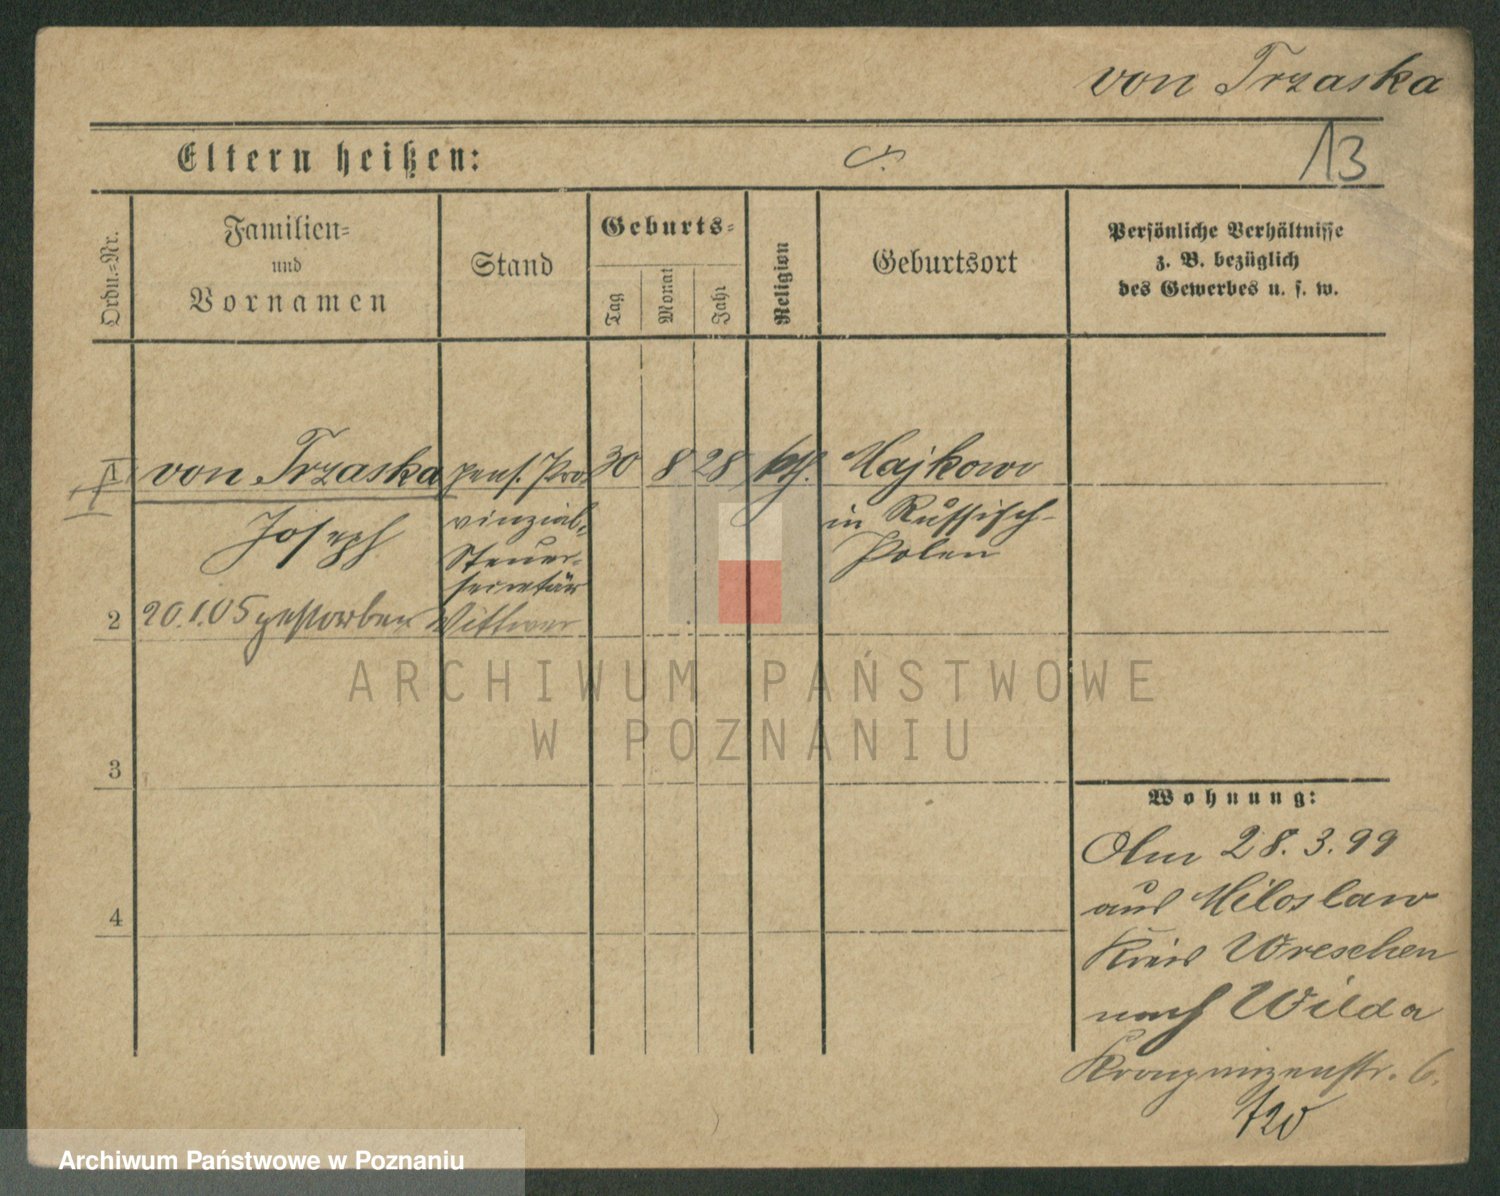 von Trzaska
Eltern heißen:
13
Ordn.=Nr.
Familien=
und
Vornamen
Stand
Geburts=
Tag
Monat
Jahr
Religion
Geburtsort
Persönliche Verhältnisse
z. B. bezüglich
des Gewerbes u. s. w.
1 von Trzaska pens. Pro- 30 8 28 kth. Majkowo
Joseph vinzial- in Russisch-
Steuer- Polen
secretär
2 20.1.05 gestorben Wittwer
ARCHIWUM PAŃSTWOWE
W POZNANIU
3
Wohnung:
Am 28.3.99
aus Miloslaw
4
Kreis Wreschen
nach Wilda
Kronprinzenstr. 6.
Archiwum Państwowe w Poznaniu